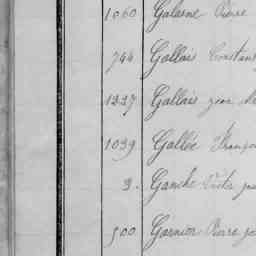 1060 Galarne Pierre
744 Gallais Constant
1237 Gallais Jean
1039 Gallée François
3. Ganche Victor
500 Garnier Pierre